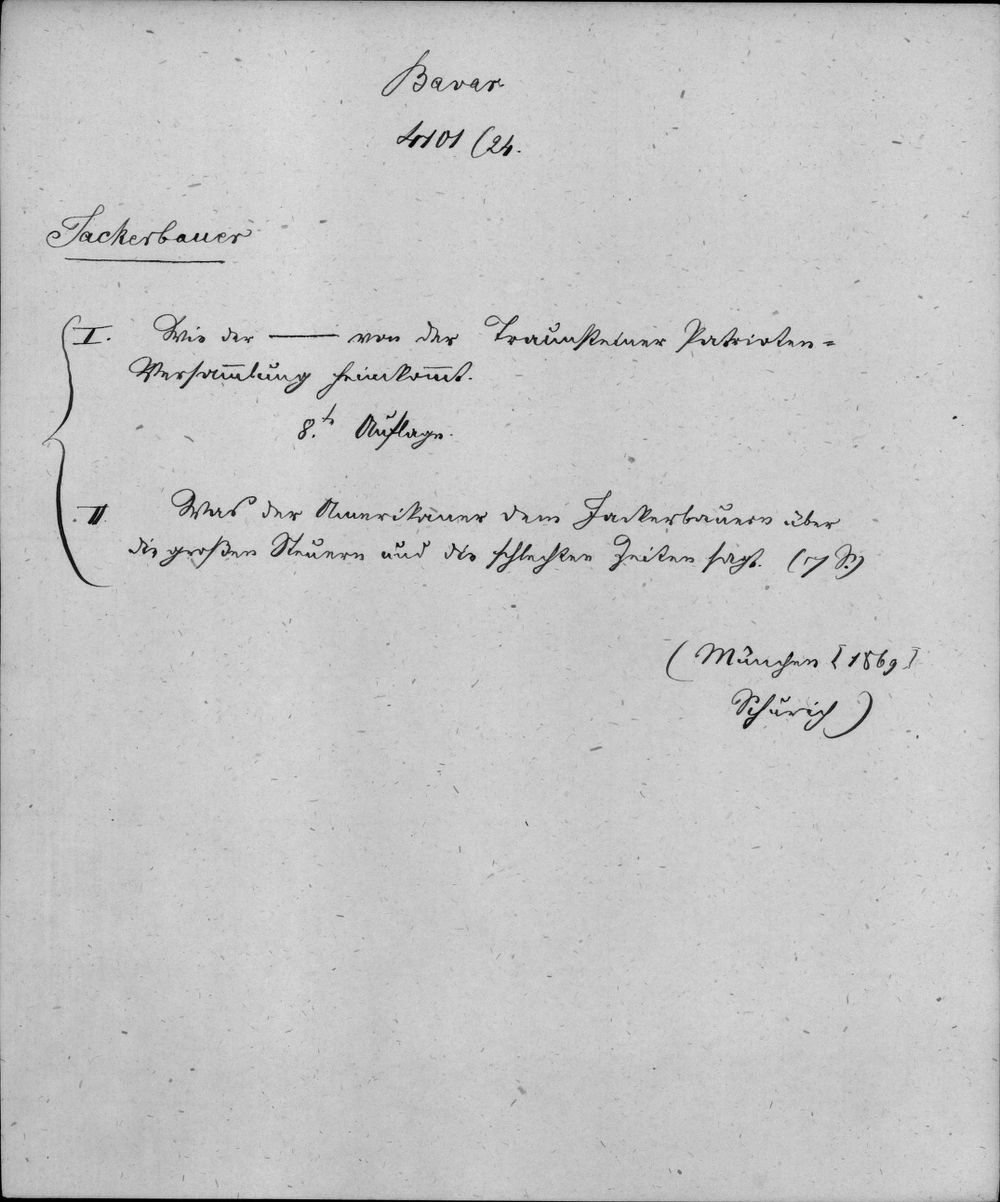 Bavar.
4101 (24.
Jackerbauer
I. Wie der —— von der Traunsteiner Patrioten=
Versam̅lung heimkom̅t.
8.te Auflage.
II. Was der Amerikaner dem Jackerbauern über
die großen Steuern und die schlechten Zeiten sagt. ( S.)
(München [1869]
Schurich)